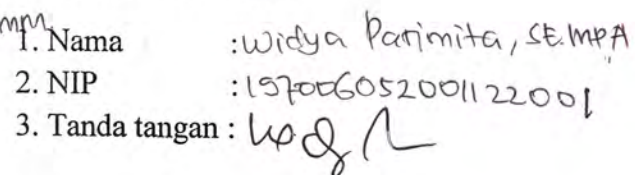 mm
1. Nama : Widya Parimita, SE.MPA
2. NIP : 197006052001122001
3. Tanda tangan :